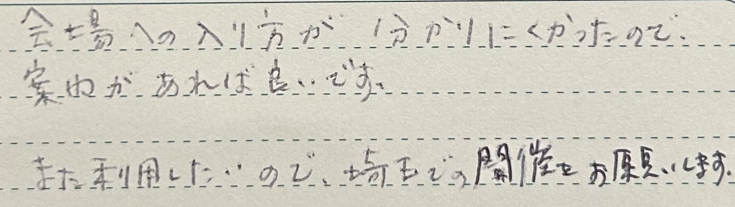 会場への入り方が分かりにくかったので、
案内があれば良いです。
また利用したいので、埼玉での開催をお願いします。